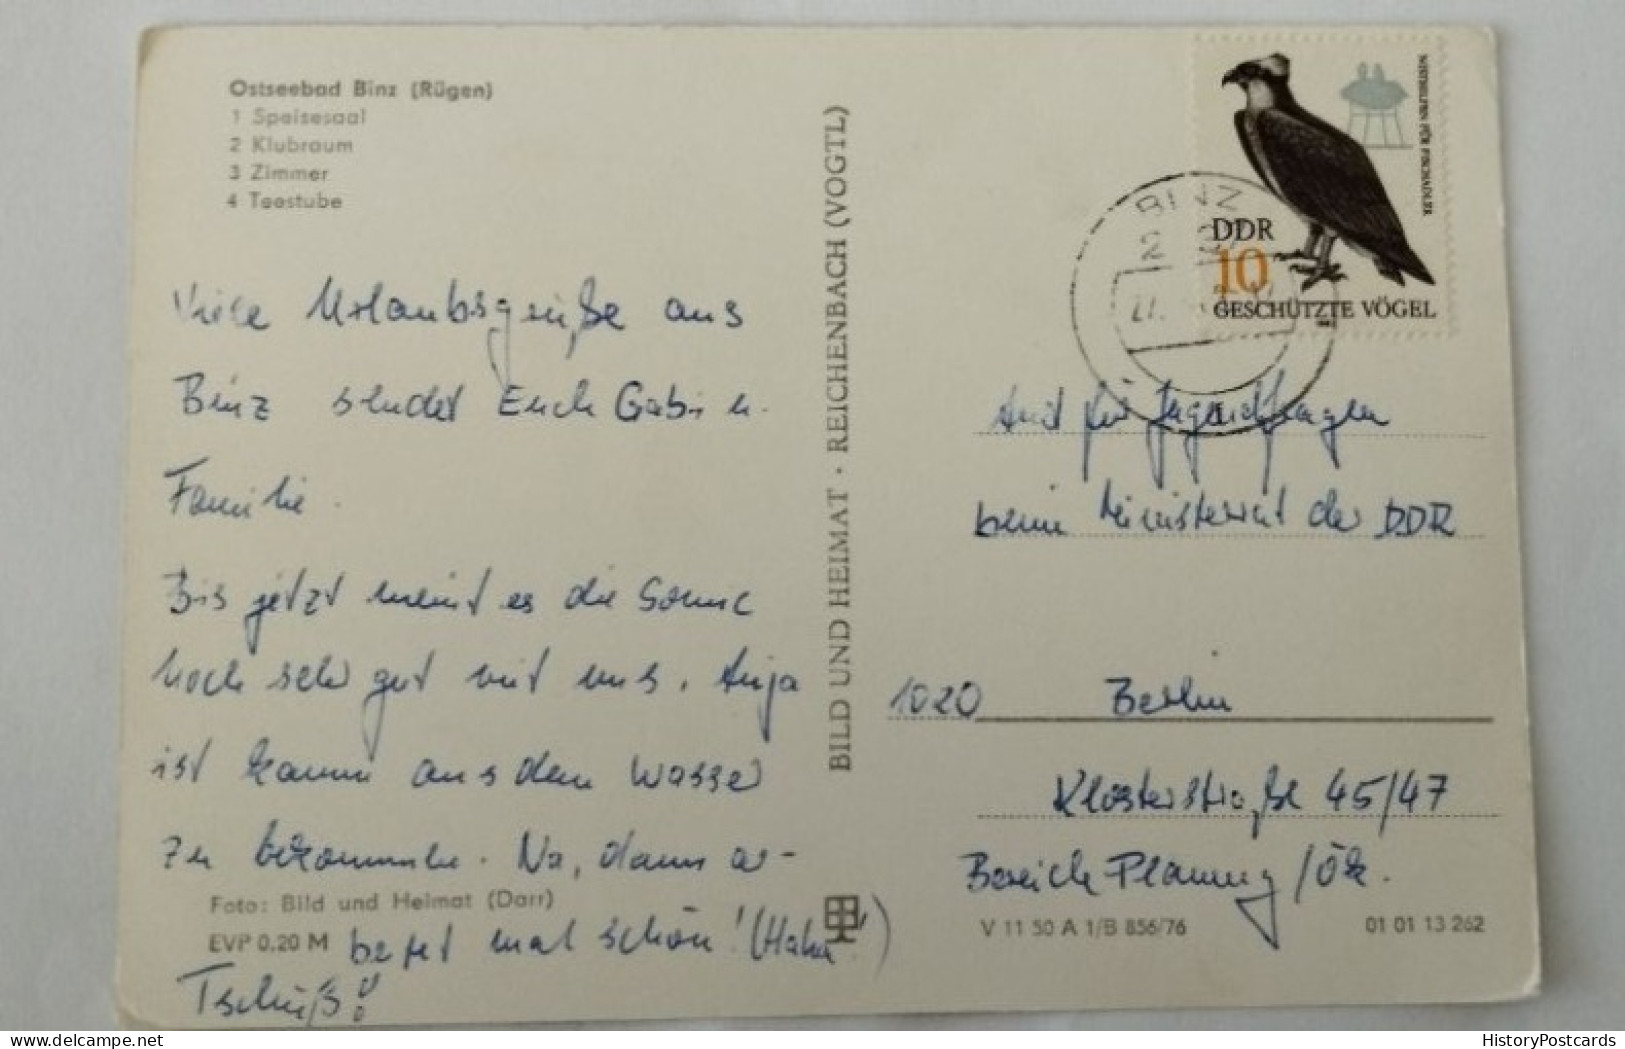 Ostseebad Binz (Rügen)
1 Speisesaal
2 Klubraum
3 Zimmer
4 Teestube
Viele Urlaubsgrüße aus
Binz sendet Euch Gabi u.
Familie.
Bis jetzt meint es die Sonne
noch sehr gut mit uns. Anja
ist kaum aus dem Wasser
zu bekommen. Na, dann ar-
beitet mal schön! (Haha!)
Tschüß!
Foto: Bild und Heimat (Darr)
EVP 0,20 M
BILD UND HEIMAT · REICHENBACH (VOGTL)
NISTHILFEN FÜR FISCHADLER
DDR
10
GESCHÜTZTE VÖGEL
BINZ
Amt für Jugendfragen
beim Ministerrat der DDR
1020 Berlin
Klosterstraße 45/47
Bereich Planung/Ök.
V 11 50 A 1/B 856/76
01 01 13 262
hip-live.com
HistoryPostcards